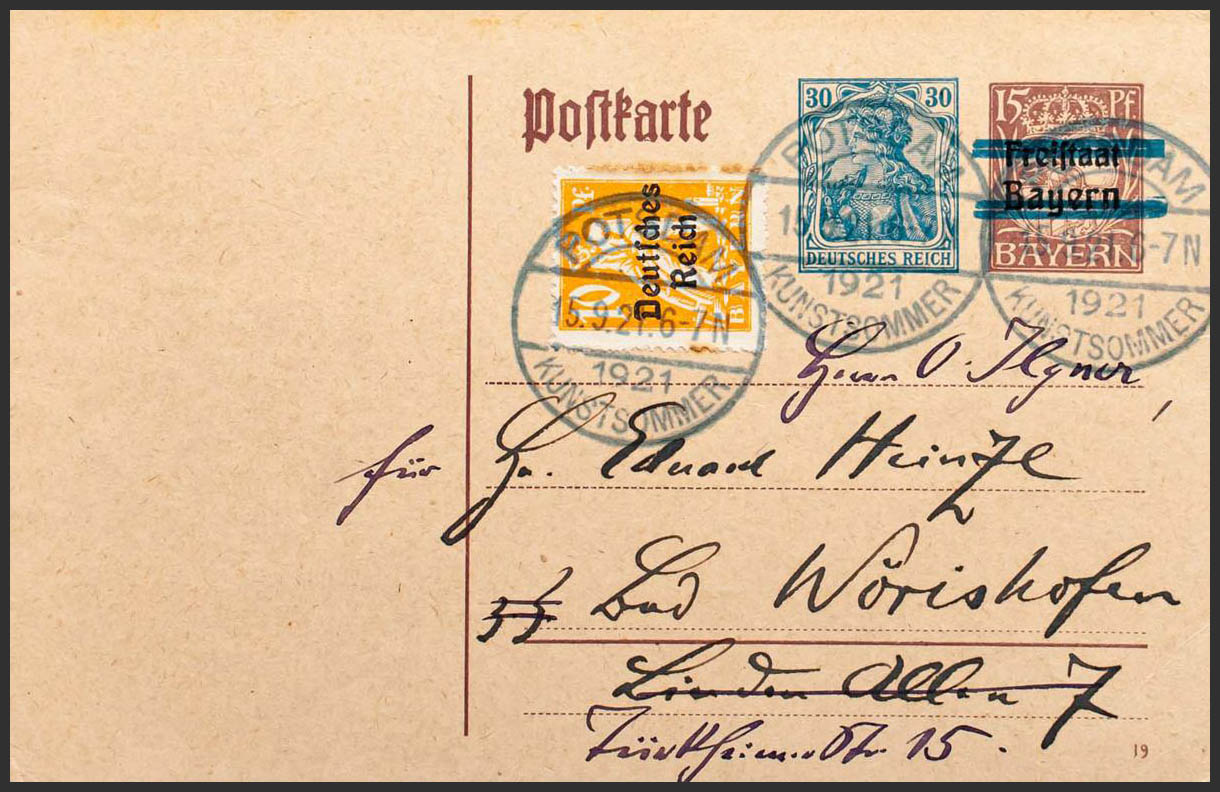 Postkarte
30 30
DEUTSCHES REICH
15 Pf
Freistaat
Bayern
BAYERN
10
Deutsches
Reich
BAYERN
POTSDAM
15.9.21.6-7N
1921
KUNSTSOMMER
POTSDAM
15.9.21.6-7N
1921
KUNSTSOMMER
POTSDAM
15.9.21.6-7N
1921
KUNSTSOMMER
Herrn O. Ilgner
für Hn. Eduard Heinzl
Bad Wörishofen
Linden Allee 7
Türkheimer Str 15.
19